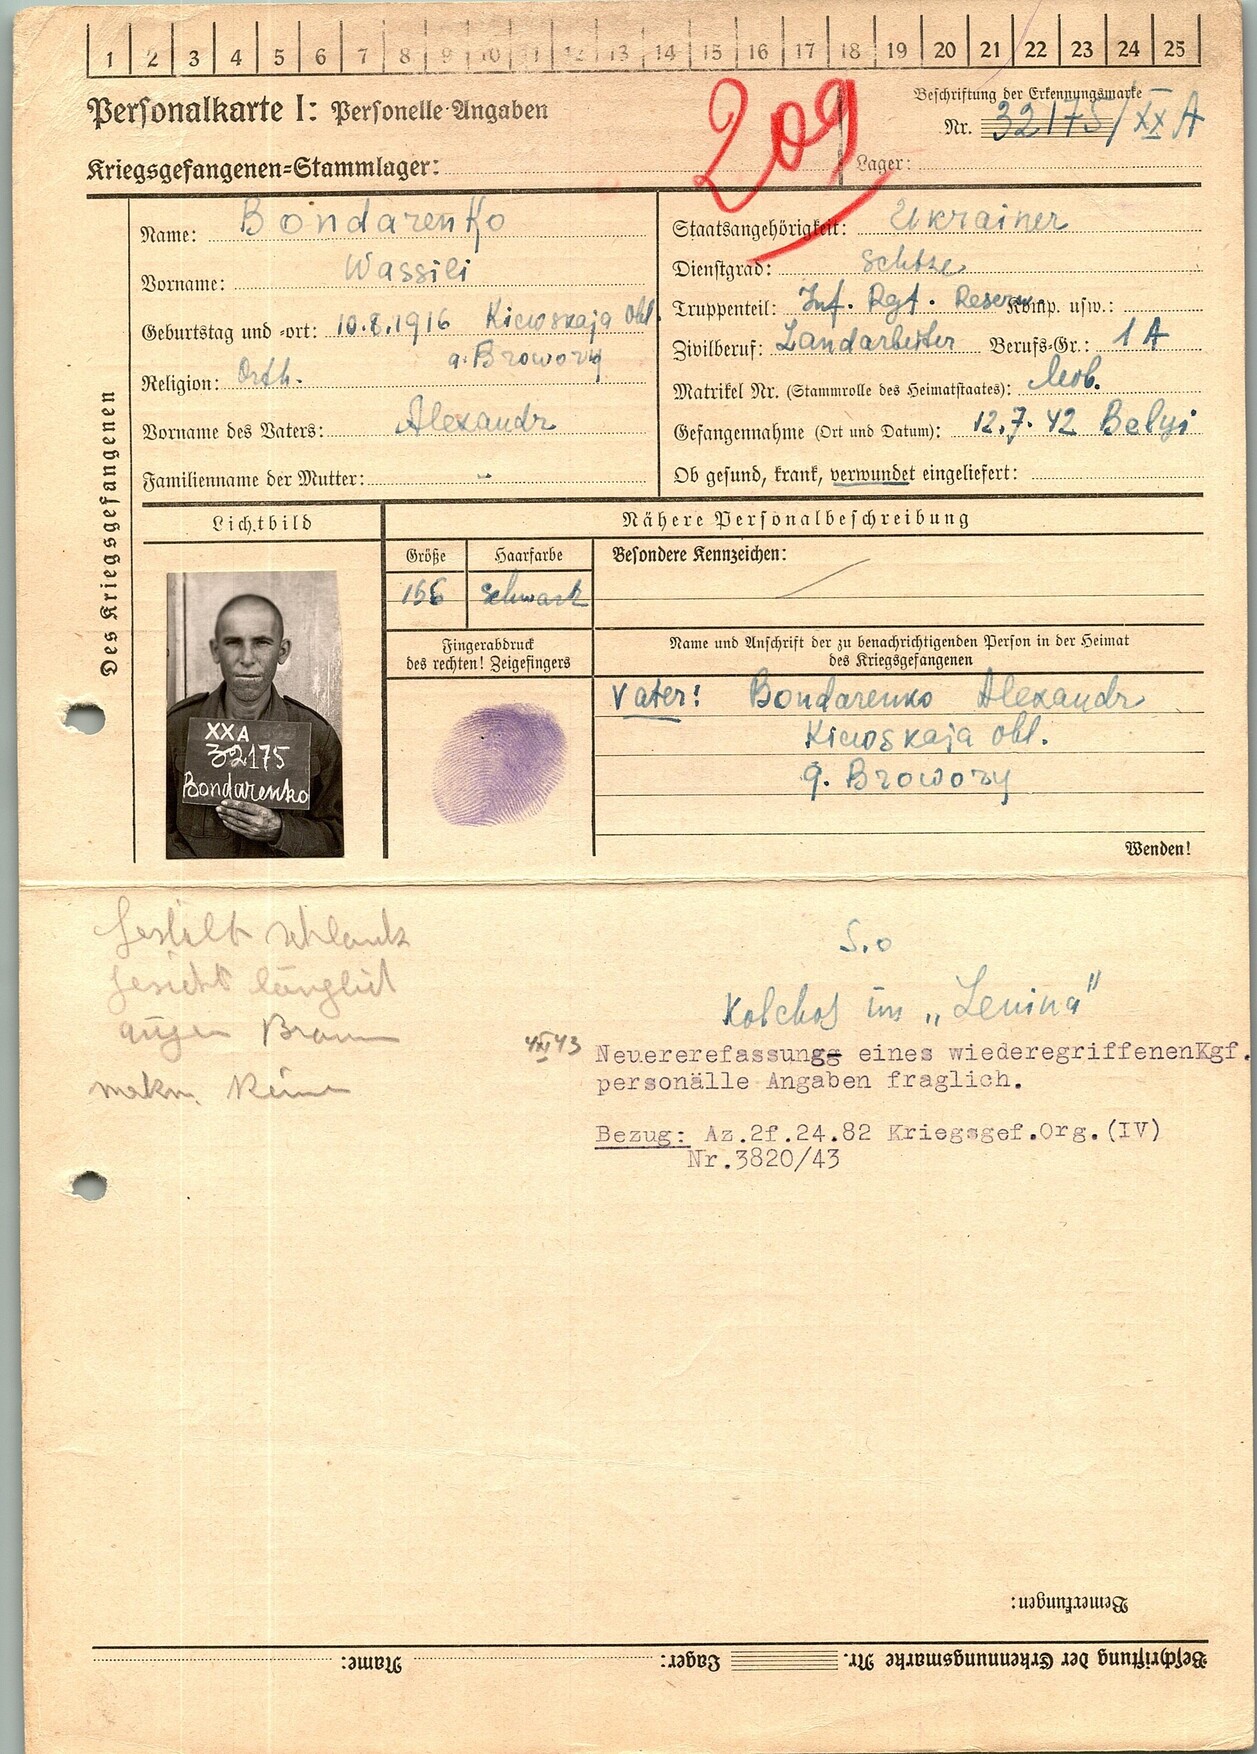 1 2 3 4 5 6 7 8 9 10 11 12 13 14 15 16 17 18 19 20 21 22 23 24 25
Personalkarte I: Personelle Angaben
209
Beschriftung der Erkennungsmarke
Nr. 32175/XX A
Kriegsgefangenen-Stammlager:
Lager:
Des Kriegsgefangenen
Name: Bondarenko
Vorname: Wassili
Geburtstag und -ort: 10.8.1916 Kiewskaja obl.
g. Browory
Religion: Orth.
Vorname des Vaters: Alexandr
Familienname der Mutter: -
Staatsangehörigkeit: Ukrainer
Dienstgrad: Schtze
Truppenteil: Inf. Rgt. Reserv. Komp. usw.:
Zivilberuf: Landarbeiter Berufs-Gr.: 1 A
Matrikel Nr. (Stammrolle des Heimatstaates): Mob.
Gefangennahme (Ort und Datum): 12.7.42 Belyi
Ob gesund, krank, verwundet eingeliefert:
Lichtbild
Nähere Personalbeschreibung
Größe
Haarfarbe
Besondere Kennzeichen:
schwarz
Fingerabdruck
des rechten! Zeigefingers
Name und Anschrift der zu benachrichtigenden Person in der Heimat
des Kriegsgefangenen
Vater: Bondarenko Alexandr
Kiewskaja obl.
g. Browory
XXA
32175
Bondarenko
Wenden!
Gestalt schlank
Gesicht länglich
augen Braun
Keine
S.o
Kolchos im „Lenina"
4XI43
Neuererefassungg eines wiederegriffenenKgf.
personälle Angaben fraglich.
Bezug: Az.2f.24.82 Kriegsgef.Org.(IV)
Nr.3820/43
Bemerkungen:
Beschriftung der Erkennungsmarke Nr. Lager: Name: